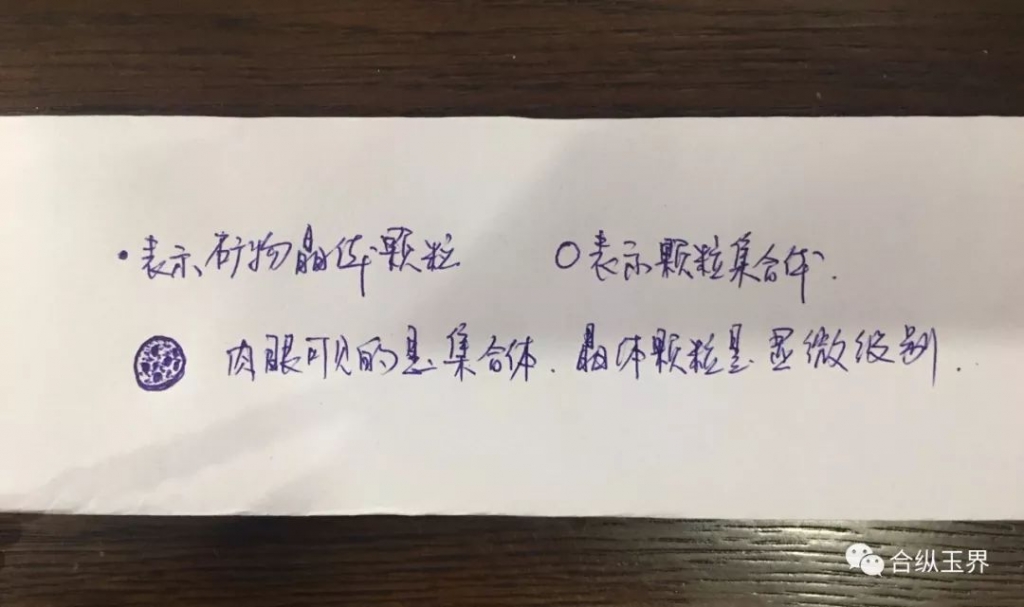 ·表示矿物晶体颗粒 ○表示颗粒集合体.
肉眼可见的是集合体.晶体颗粒是显微级别.
合纵玉界